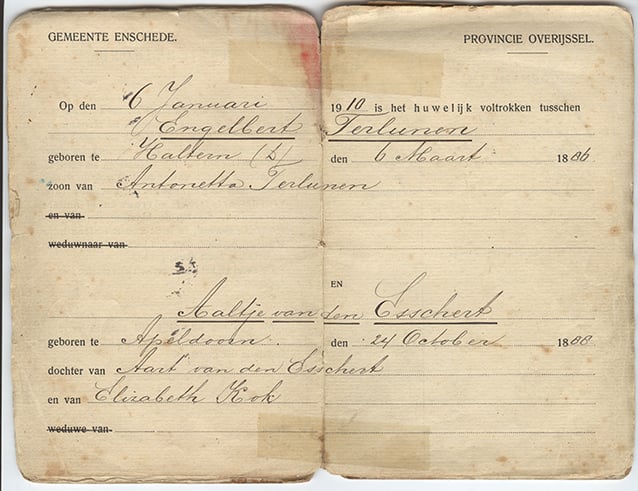 GEMEENTE ENSCHEDE. PROVINCIE OVERIJSSEL.
Op den 6 Januari 1910 is het huwelijk voltrokken tusschen
Engelbert Terlunen
geboren te Haltern (D) den 6 Maart 1886
zoon van Antonetta Terlunen
en van
weduwnaar van
EN
Aaltje van den Esschert
geboren te Apeldoorn den 24 October 1888
dochter van Aart van den Esschert
en van Elizabeth Kok
weduwe van